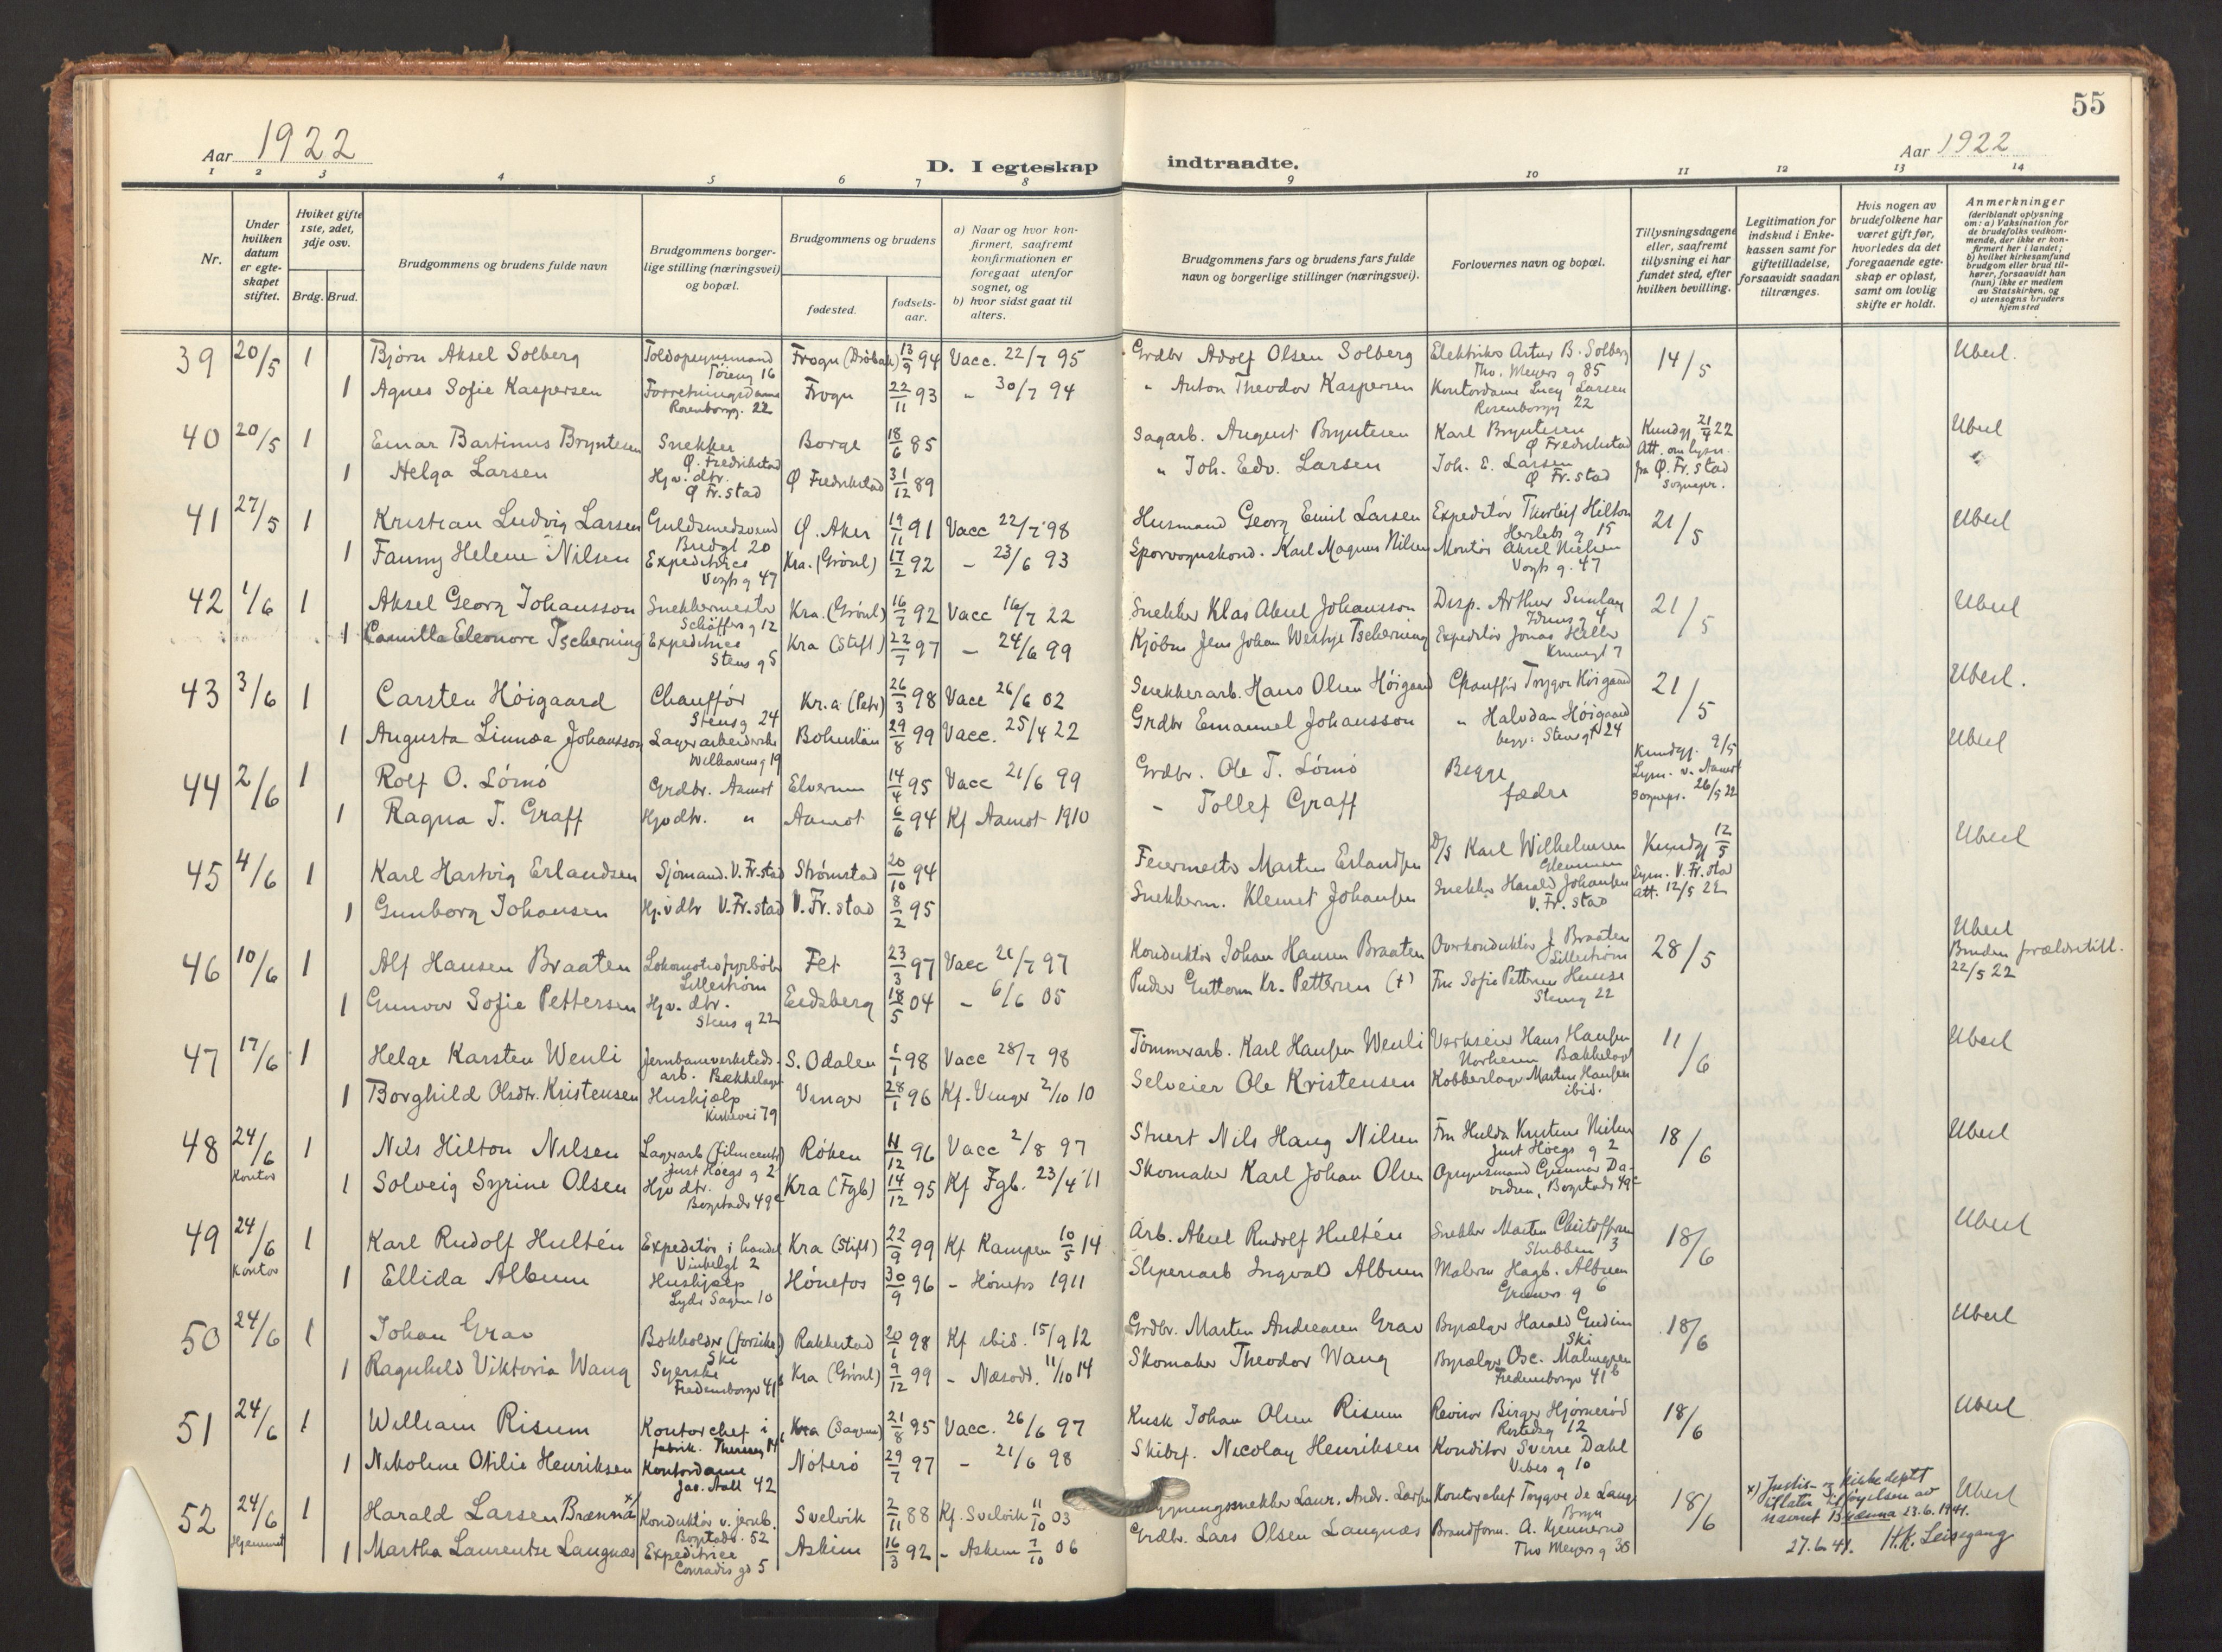 55
Aar 1922
D. I egteskap indtraadte.
Aar 1922
1 2 3 4 5 6 7 8 9 10 11 12 13 14
Nr.
Under hvilken datum er egteskapet stiftet.
Hvilket gifte 1ste, 2det, 3dje osv.
Brdg. Brud.
Brudgommens og brudens fulde navn
Brudgommens borgerlige stilling (næringsvei) og bopæl.
Brudgommens og brudens
fødested.
fødselsaar.
a) Naar og hvor konfirmert, saafremt konfirmationen er foregaat utenfor sognet, og
b) hvor sidst gaat til alters.
Brudgommens fars og brudens fars fulde navn og borgerlige stillinger (næringsvei).
Forlovernes navn og bopæl.
Tillysningsdagene eller, saafremt tillysning ei har fundet sted, efter hvilken bevilling.
Legitimation for indskud i Enkekassen samt for giftetilladelse, forsaavidt saadan tiltrænges.
Hvis nogen av brudefolkene har været gift før, hvorledes da det foregaaende egteskap er opløst, samt om lovlig skifte er holdt.
Anmerkninger
(deriblandt oplysning om: a) Vaksination for de brudefolks vedkommende, der ikke er konfirmert her i landet; b) hvilket kirkesamfund brudgom eller brud tilhører, forsaavidt han (hun) ikke er medlem av Statskirken, og c) utensogns bruders hjemsted
39 20/5 1 Bjørn Aksel Solberg Toldopsynsmand Tøieng 16 Frogn (Drøbak) 13/9 94 Vacc. 22/7 95 Grdbr Adolf Olsen Solberg Elektriker Artur B. Solberg Th. Meyers g 85 14/5 Uberl.
1 Agnes Sofie Kaspersen Forretningsdame Rosenborgg. 22 Frogn 22/11 93 " 30/7 94 " Anton Theodor Kaspersen Kontordame Lucy Larsen Rosenborgg 22
40 20/5 1 Einar Bartinus Bryntesen Snekker Ø. Fredrikstad Borge 18/6 85 Sagarb. August Bryntesen Karl Bryntesen Ø Fredrikstad Kundgj 21/4 22 Att. om lysn. fra Ø. Fr.stad sognepr. Uberl
1 Helga Larsen Hjv. dtr. Ø Fr.stad Ø Fredrikstad 31/12 89 " Joh. Edv. Larsen Joh. E. Larsen Ø Fr. stad
41 27/5 1 Kristian Ludvig Larsen Guldsmedsvend Bredgt 20 Ø. Aker 19/11 91 Vacc 22/7 98 Husmand Georg Emil Larsen Expeditør Thorleif Hilton Herslebs g 15 21/5 Uberl
1 Fanny Helene Nilsen Expeditrice Vogts g 47 Kra. (Grønl) 17/2 92 - 23/6 93 Sporvognskond. Karl Magnus Nilsen Montør Aksel Nielsen Vogts g. 47
42 1/6 1 Aksel Georg Johansson Snekkermester Schöffers g 12 Kra. (Grønl) 16/7 92 Vacc 16/7 22 Snekker Klas Aksel Johansson Disp. Arthur 21/5 Uberl
1 Camilla Eleonore Tscherning Expeditrice Stens g 5 Kra (Stift) 22/7 97 - 24/6 99 Kjøbm Jens Johan Westye Tscherning Expeditør Jonas Heller
43 3/6 1 Carsten Høigaard Chauffør Stensg 24 Kr.a (Petr) 26/3 98 Vacc 26/6 02 Snekkerarb. Hans Olsen Høigaard Chauffør Trygve Høigaard 21/5 Uberl.
1 Augusta Linnea Johansson Lagerarbeiderske Welhavensg 19 Bohuslän 29/8 99 Vacc. 25/4 22 Grdbr Emanuel Johansson " Halvdan Høigaard begge: Stensgt 24
44 2/6 1 Rolf O. Lømo Grdbr. Aamot Elverum 14/4 95 Vacc 21/6 99 Grdbr. Ole T. Lømo Begge fædre Kundgj. 9/5 Lysn. v. Aamot sognepr. 26/5 22 Uberl
1 Ragna T. Graff Hjv dtr. " Aamot 6/6 94 Kf Aamot 1910 - Tollef Graff
45 4/6 1 Karl Hartvig Erlandsen Sjømand. V. Fr.stad Strømstad 20/10 94 Feiermester Martin Erlandsen D/S Karl Wilhelmsen Glemmen Kundgj 12/5 Lysn. V. Fr. stad att. 12/5 22 Uberl
1 Gunborg Johansen Hj.v dtr V. Fr. stad V. Fr. stad 8/2 95 Snekkerm. Klemet Johansen Snekker Harald Johansen V. Fr. stad
46 10/6 1 Alf Hansen Braaten Lokomotivfyrbøter Lillestrøm Fet 23/3 97 Vacc 21/7 97 Konduktør Johan Hansen Braaten Overkonduktør J. Braaten Lillestrøm 28/5 Uberl Bruden forældretill. 22/5 22
1 Gunvor Sofie Pettersen Hjv. dtr. Stens g 22 Eidsberg 18/5 04 - 6/6 05 Pudser Guttorm Kr. Pettersen (+) Fru Sofie Pettersen Stensg 22
47 17/6 1 Helge Karsten Wenli Jernbaneverkstedsarb. Bækkelaget S. Odalen 1/1 98 Vacc 28/7 98 Tømmerarb. Karl Hansen Wenli Verkseier Hans Hansen Norheim Bækkelaget 11/6 Uberl
1 Borghild Olsdtr. Kristensen Hushjælp Kirkevei 79 Vinger 28/1 96 Kf. Vinger 2/10 10 Selveier Ole Kristensen Kobberslager Martin Hansen ibid.
48 24/6 Kontor 1 Nils Hilton Nilsen Lagerarb (filmcentr) Just Høegs g 2 Røken 11/12 96 Vacc 2/8 97 Stuert Nils Haug Nilsen Fru Hulda Kristine Nielsen Just Høegs g 2 18/6 Uberl
1 Solveig Syrine Olsen Hjv dtr. Bogstadv 49c Kra (Fgb) 14/12 95 Kf Fgb. 23/4 11 Skomaker Karl Johan Olsen Opsynsmand Gunnar Davidsen, Bogstadv 49c
49 24/6 Kontor 1 Karl Rudolf Hultén Expeditør i handel Vinbelgt 2 Kra (Stift) 22/9 99 Kf Kampen 10/5 14 Arb. Aksel Rudolf Hultén Snekker Martin Christoffersen Stubben 3 18/6 Uberl
1 Ellida Album Hushjælp Lyder Sagen 10 Hønefos 30/9 96 - Hønefos 1911 Sliperiarb Ingvald Album Malerm Hagb. Album g 6
50 24/6 1 Johan Grav Bokholder (forsikr) Ski Rakkestad 20/1 98 Kf ibid. 15/9 12 Grdbr. Martin Andreasen Grav Byselger Harald Gudim Ski 18/6 Uberl
1 Ragnhild Viktoria Wang Syerske Fredensborgv 41b Kra (Grønl) 9/12 99 - Næsodd. 11/10 14 Skomaker Theodor Wang Osc. Malmgren Fredensborgv 41b
51 24/6 1 William Risum Kontorchef i fabrik. Theresesg 14 Kra (Sagene) 21/8 95 Vacc. 26/6 97 Kusk Johan Olsen Risum Revisor Birger Hjørnerød 12 18/6 Uberl
1 Nikoline Otilie Henriksen Kontordame Jac. Aall 42 Nøterø 29/7 97 - 21/6 98 Skibsf. Nicolay Henriksen Konditor Sverre Dahl Vibes g 10
52 24/6 Hjemmet 1 Harald Larsen Brænna x) Konduktør v. jernb. Bogstadv. 52 Svelvik 2/11 88 Kf. Svelvik 11/10 03 Bygningssnekker Laur. Andr. Larsen Kontorchef Trygve de Lange Bryn 18/6 x) Justis- og Kirkedeptt tillater tilføyelsen av navnet Brænna 23.6.1941. 27.6.41. H.K. Leisegang Uberl
1 Martha Laurentze Langnæs Expeditrice Conradis gd 5 Askim 16/3 92 - Askim 7/10 06 Grdbr. Lars Olsen Langnæs Brandform. A. Kjennerud Ths Meyers g 36